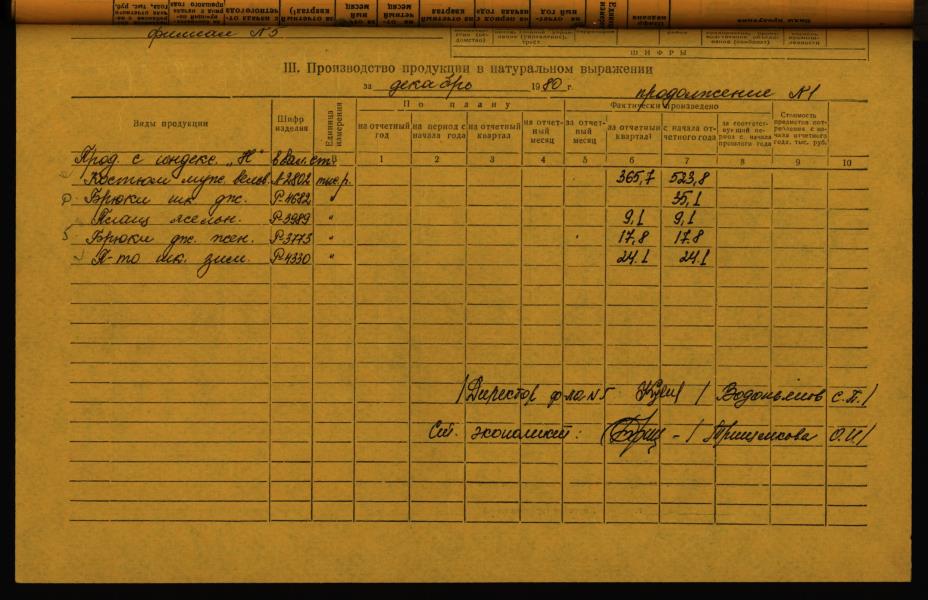 филиал №5
ШИФРЫ
III. Производство продукции в натуральном выражении
за декабрь 1980 г.
продолжение №1
Виды продукции
Шифр изделия
Единица измерения
По плану
Фактически произведено
на отчетный год
на период с начала года
на отчетный квартал
на отчетный месяц
за отчетный месяц
за отчетный квартал
с начала отчетного года
за соответствующий период с начала прошлого года
1 2 3 4 5 6 7 8 9 10
Прод. с индекс. „Н" в вал. ст.
Костюм муж. вельв. А2802 тыс.р. 365,7 523,8
Брюки шк. дж. Р-4682 " 35,1
Плащ Р-3989 " 9,1 9,1
Брюки дж. жен. Р-3773 " 17,8 17.8
П-то шк. зим. Р-4330 " 24.1 24.1
/Директор ф-ла №5 / Водопьянов С.П./
Ст. экономист: - / О.И/